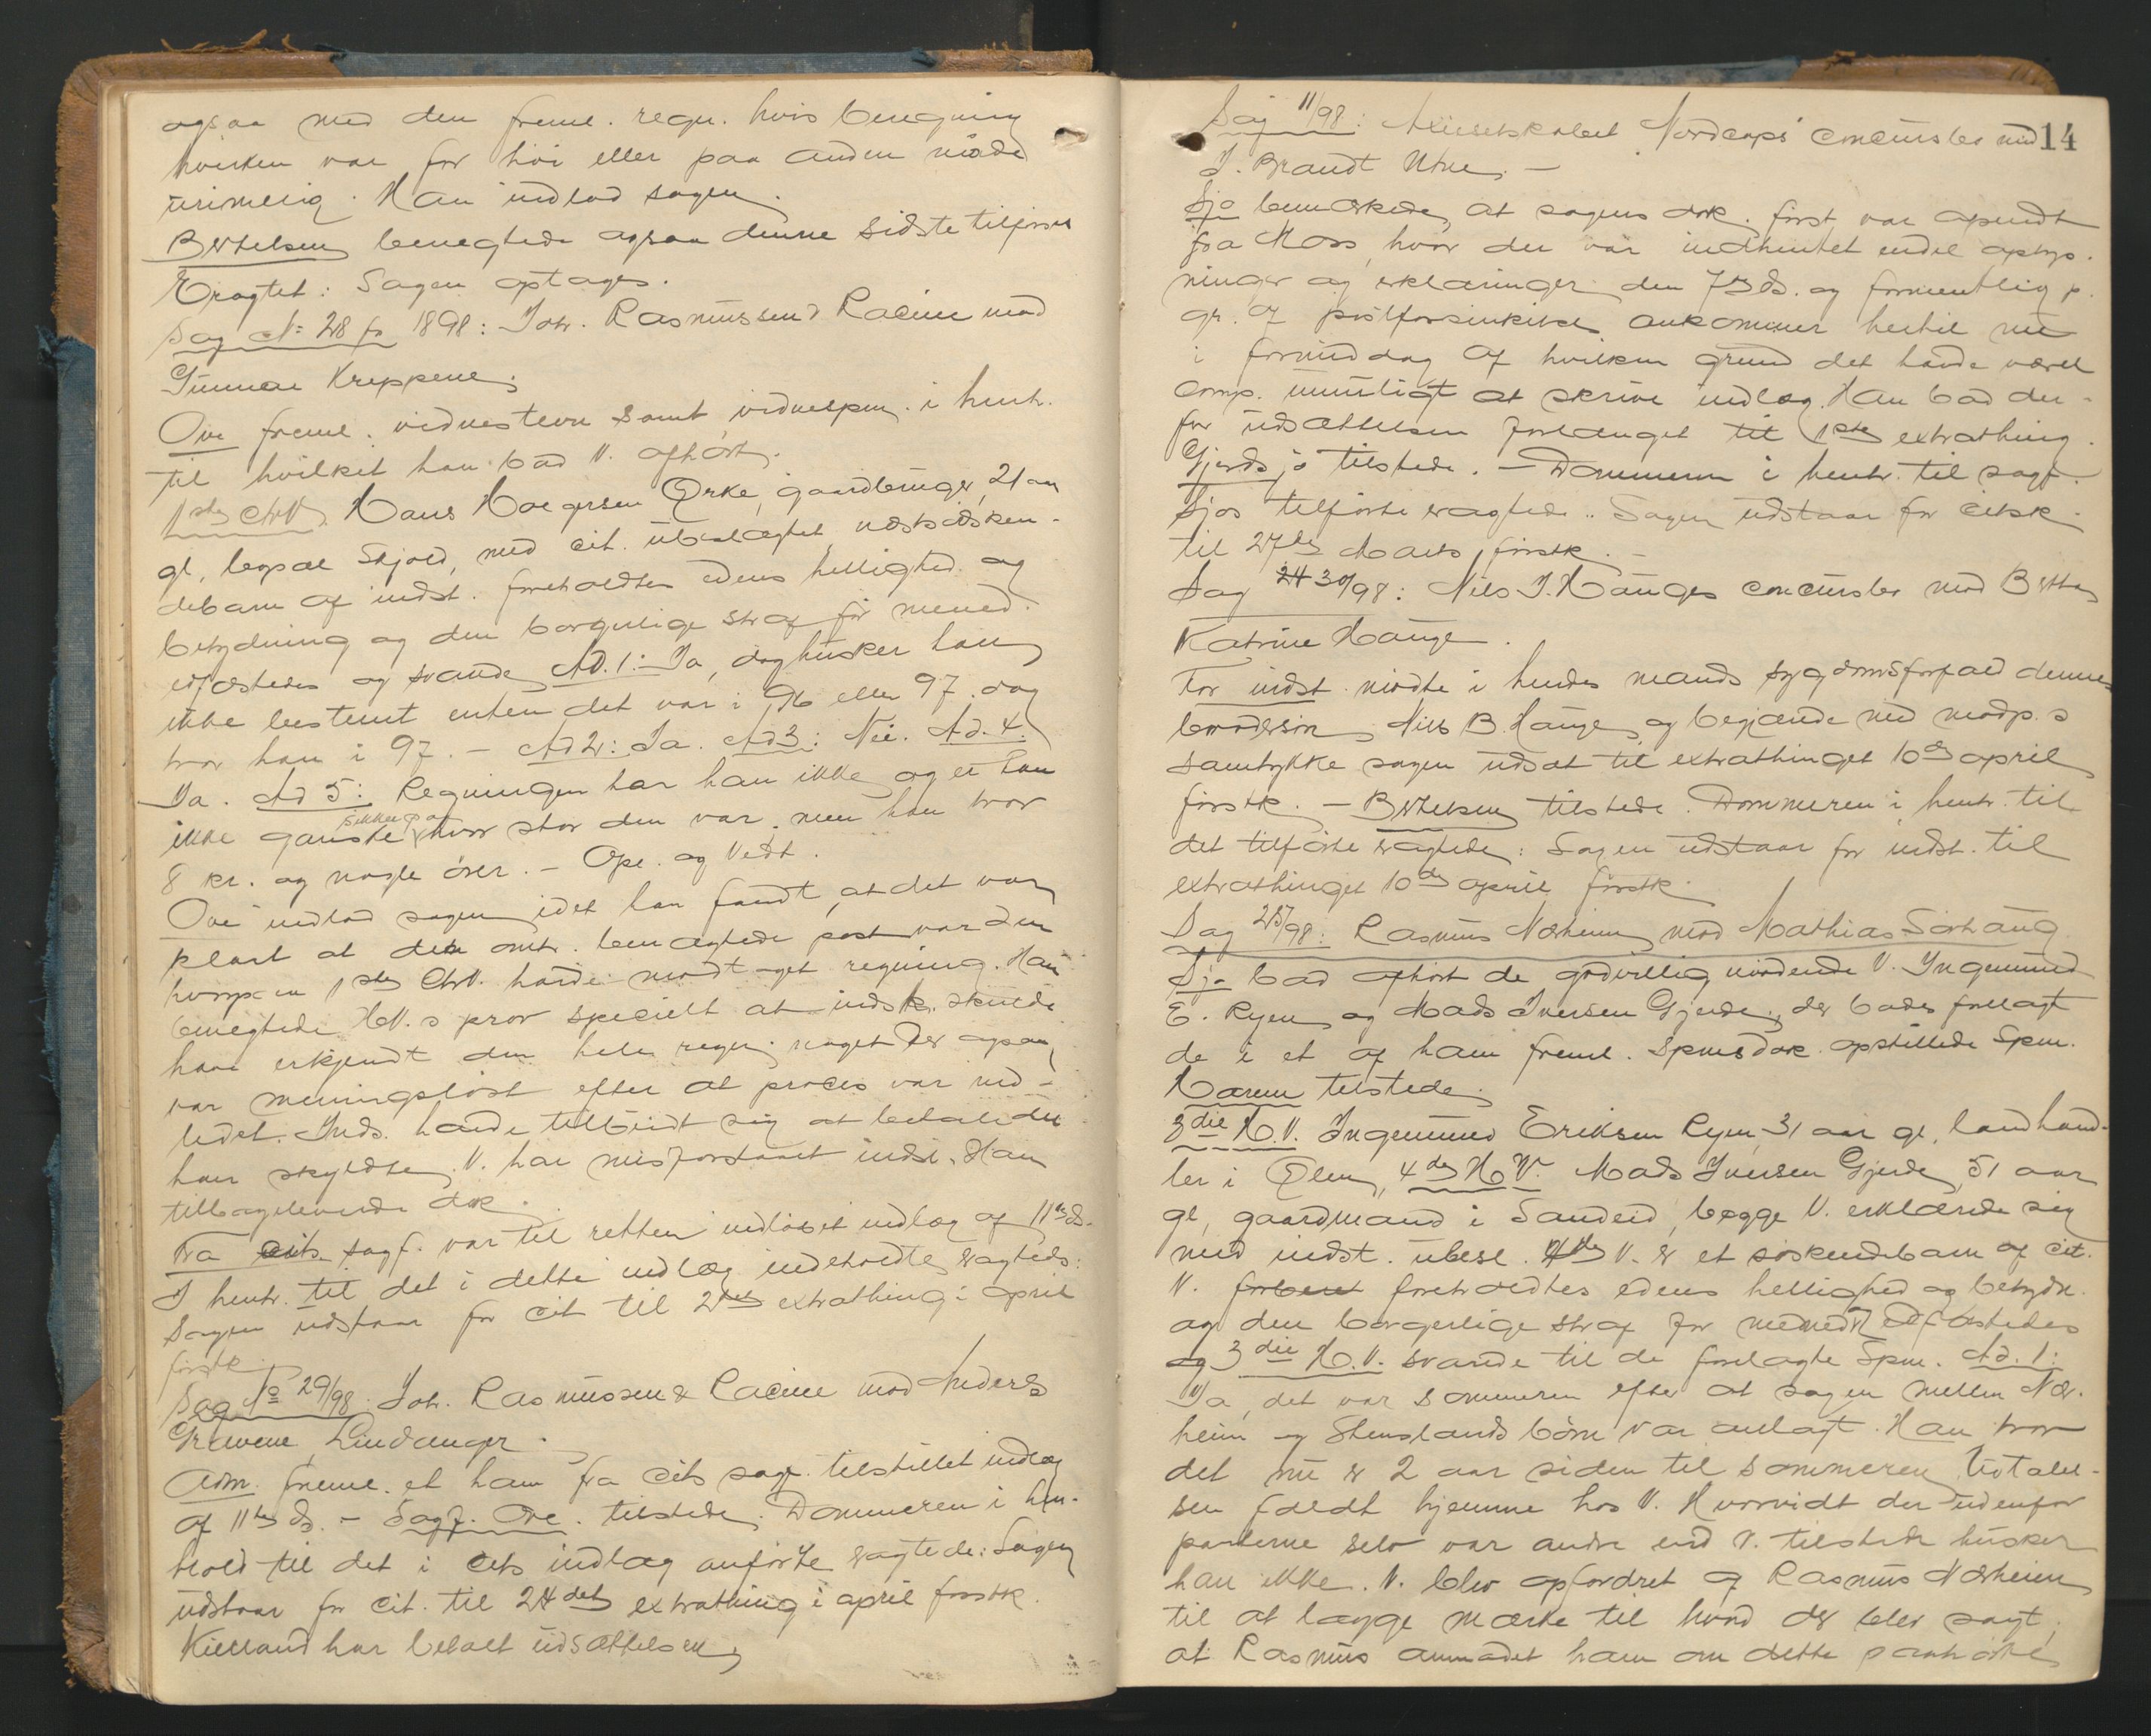 ogsaa med den freml. regn. hvis beregning
hverken var for höi eller paa anden måde
urimelig. Han indlod sagen.
Bertelsen benegtede ogsaa denne sidste tilförsel
Eragtet: Sagen optages.
Sag No 28 fr 1898: Joh. Rasmussen & Racine mod
Gunnar Kreppene.
Ove freml. vidnestevn samt vidnespm. i henh.
til hvilket han bad V. afhört.
1ste CtV. Hans Hoegersen Ørke, gaardbruger, 21 aar
gl., bopæl Skjold, med cit. ubeslægtet, næstsödsken-
debarn af indst. foreholdtes edens hellighed og
betydning og den borgerlige straf for mened.
edfæstedes og svarede Ad. 1: Ja, dog husker han
ikke bestemt enten det var i 96 eller 97. dog
tror han i 97. - Ad 2: Ja. Ad 3: Nei. Ad. 4.
Ja. Ad 5: Regningen har han ikke og er han
ikke ganske sikker paa hvor stor den var, men han tror
8 kr. og nogle örer. - Opl. og Vedt.
Ove indlod sagen idet han fandt, at det var
klart at den omtv. benægtede post var den
hvorpaa 1ste CtV. havde modtaget regning. Han
benegtede HV.s prov specielt at indst. skulde
have erkjendt den hele regn. noget der ogsaa
var meningslöst efter at proces var ind-
ledet. Inds. havde tilbudt sig at betale det
han skyldte. V. har misforstaaet indst. Han
tilbageleverede dok.
Fra cits sagf. var til retten indlöbet indlæg af 11te ds.
I henh. til det i dette indlæg indeholdte eragtedes:
Sagen udstaar for cit til 2det extrathing i april
förstk.
Sag No 29/98: Joh. Rasmussen & Racine mod Anders
Gravene Lindanger.
Adm. freml. et ham fra cits sagf. tilstillet indlæg
af 11te ds. - Sagf. Ove. tilstede. Dommeren i hen-
hold til det i cits indlæg anförte eragtede: Sagen
udstaar for cit. til 2det extrathing i april förstk.
Kielland har betalt udsættelsen
14
Sag 11/98: Aktieselskabet "Nordcaps" concursbo mod
J. Brandt Utne. -
Sjo bemærkede, at sagens dok. först var afsendt
fra Moss, hvor der var indhentet endel oplys-
ninger og erklæringer den 7de ds. og formentlig p.
gr. af postforsinkelse ankommer hertil nu
i formiddag af hvilken grund det havde været
comp. umuligt at skrive indlæg. Han bad der-
for udsættelsen forlænget til 1ste extrathing.
Gjerdsjö tilstede. - Dommeren i henh. til sagf.
Sjos tilförte eragtede: Sagen udstaar for citsk.
til 27de Marts förstk. -
Sag 30/98: Nils J. Hauges concursbo mod Bertha
Katrine Hauge.
For indst. mödte i hendes mands sygdomsforfald dennes
brodersön Nils B. Hauge og begjærede med modp.s
samtykke sagen udsat til extrathinget 10de april
förstk. - Bertelsen tilstede. Dommeren i henh. til
det tilförte eragtede: Sagen udstaar for indst. til
extrathinget 10de april förstk.
Sag 25/98: Rasmus Nærheim mod Mathias Sörhaug
Sjo bad afhört de godvillig mödende V. Ingemund
E. Ryen og Mads Iversen Gjerde, der bades forelagt
de i et af ham freml. Spmsdok. opstillede Spm.
Harem tilstede.
3die H.V. Ingemund Eriksen Ryen 31 aar gl., landhand-
ler i Ølen, 4de H.V. Mads Iversen Gjerde, 51 aar
gl, gaardmand i Sandeid, begge V. erklærede sig
med indst. ubesl. 4de V. er et söskendebarn af cit.
V. foreholdtes edens hellighed og betydn.
og den borgerlige straf for mened. Edfæstedes
og 3die H.V. svarede til de forelagte Spm. Ad. 1:
Ja, det var sommeren efter at sagen mellem Nær-
heim og Stenslands börn var anlagt. Han tror
det nu er 2 aar siden til sommeren. Udtalel-
sen faldt hjemme hos V. Hvorvidt der udenfor
parterne selv var andre end V. tilstede husker
han ikke. V. blev opfordret af Rasmus Nærheim
til at lægge mærke til hvad der blev sagt,
at Rasmus anmodet ham om dette paahörte